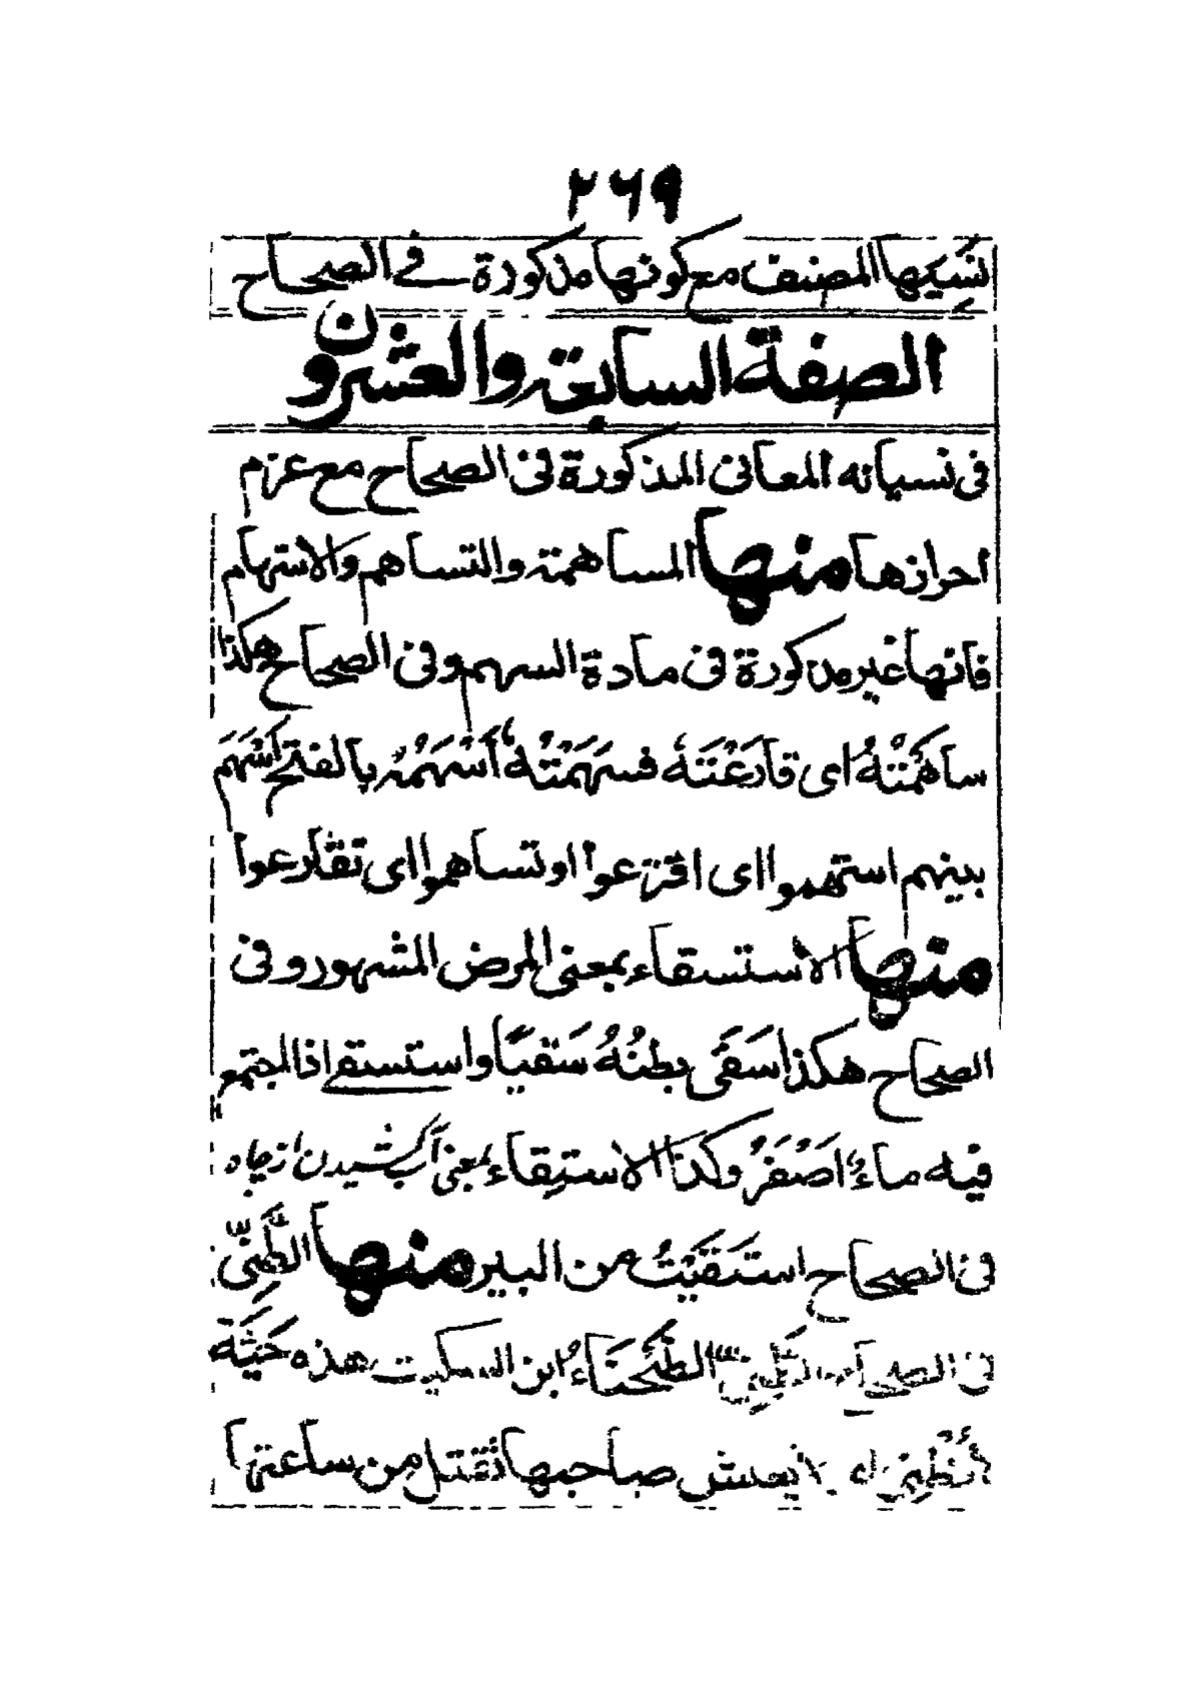 ٢٦٩
نَسِيَها المصنف مع كونها مذكورة فے الصحاح
الصفة السابعة والعشرون
فى نسيانه المعانى المذكورة فى الصحاح مع عزم
احرازها منها المساهمة والتساهم والاستهام
فانها غير مذكورة فى مادة السهم وفى الصحاح هكذا
ساهَمْتُهُ اى قارَعْتَهُ فسَهَمْتُهُ أَسْهَمُهُ بالفتح أَسْهَمَ
بينهم استهموا اى اقترعوا او تساهموا اى تقارعوا
منها الاستسقاء بمعنى المرض المشهور و فى
الصحاح هكذا سَقَى بطنُهُ سَقْيًا واستسقے اذا اجتمع
فيه ماءٌ اَصْفَرُ وكذا الاستِقاء بمعنى آب كشيدن از چاه
فى الصحاح استَقَيْتُ من البير منها الطَّنِيّ
فى الصحاح الطَّحْنَاءُ ابن السكيت هذه حَيَّةٌ
لا تُطْنِي اى لا يعيش صاحبها تَقْتل من ساعتها